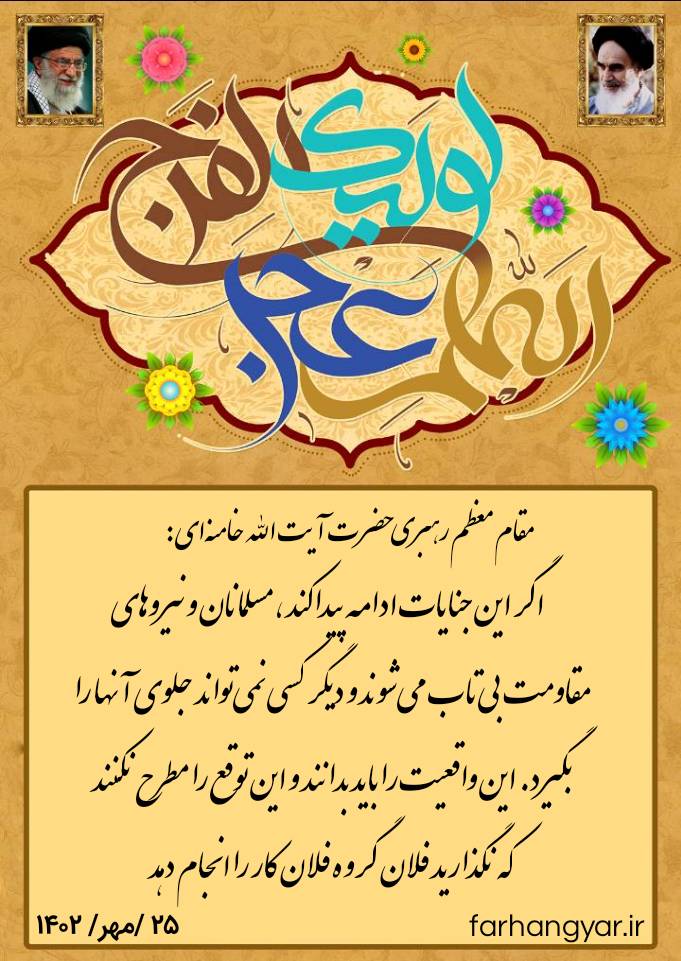 اللهم عجل
لولیک الفرج
مقام معظم رهبری حضرت آیت الله خامنه‌ای:
اگر این جنایات ادامه پیدا کند، مسلمانان و نیروهای
مقاومت بی تاب می شوند و دیگر کسی نمی تواند جلوی آنها را
بگیرد. این واقعیت را باید بدانند و این توقع را مطرح نکنند
که نگذارید فلان گروه فلان کار را انجام دهد
۲۵ /مهر/ ۱۴۰۲
farhangyar.ir